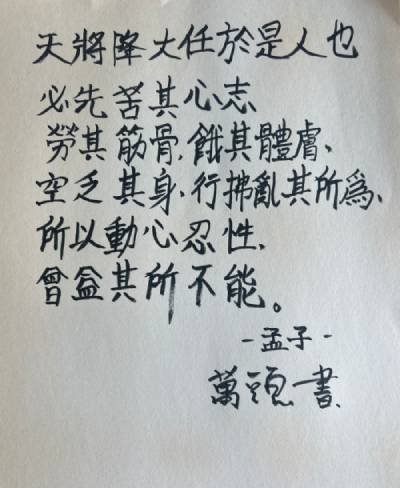 天將降大任於是人也
必先苦其心志
勞其筋骨、餓其體膚、
空乏其身、行拂亂其所為、
所以動心忍性、
曾益其所不能。
-孟子-
萬頭書